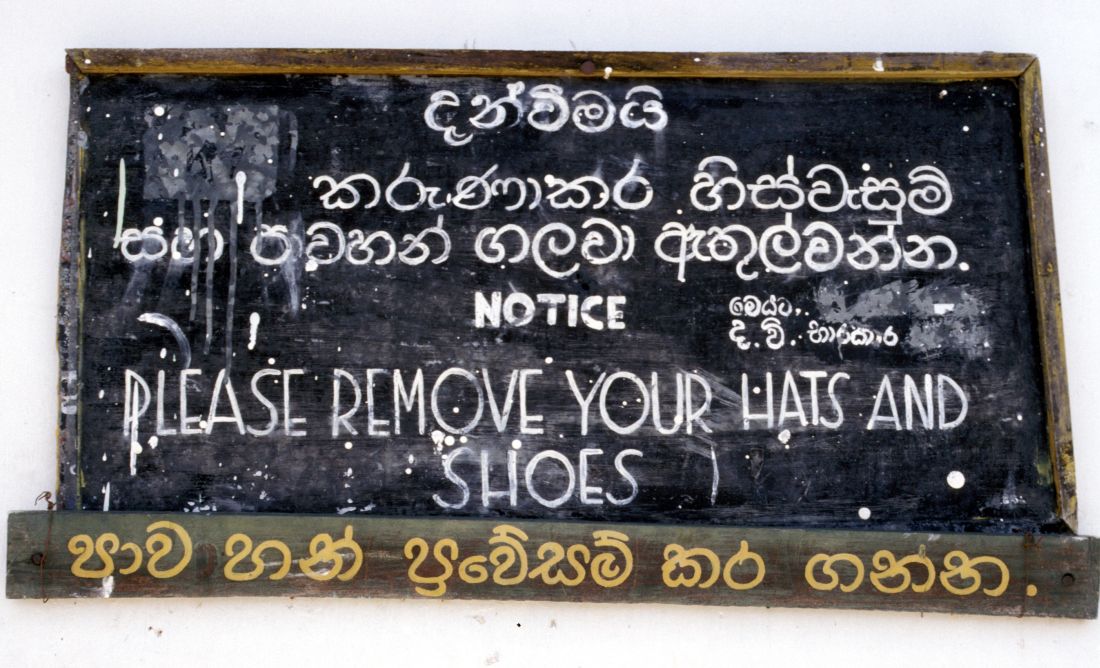 දැන්වීමයි
කරුණාකර හිස්වැසුම්
සහ පාවහන් ගලවා ඇතුල්වන්න.
NOTICE
මෙයට,
ද.වි. භාරකාර
PLEASE REMOVE YOUR HATS AND
SHOES
පාවහන් ප්‍රවේසම් කර ගන්න.